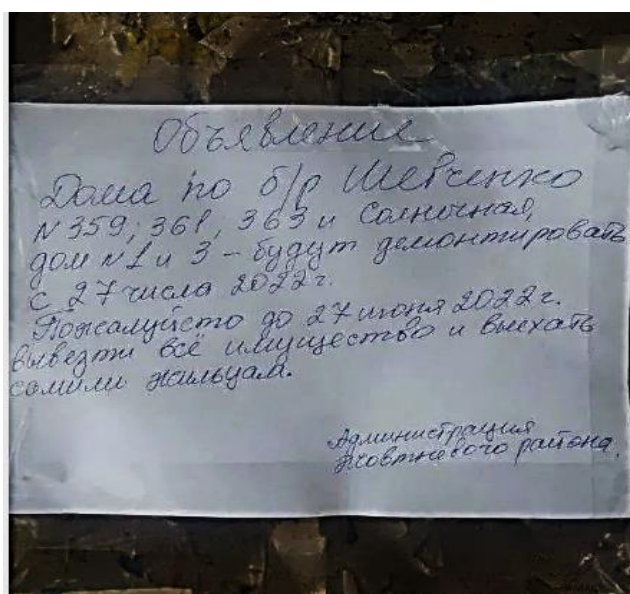 Объявление
Дома по б/р Шевченко
№359; 361, 363 и Солнечная,
дом №1 и 3 – будут демонтировать
с 27 числа 2022 г.
Пожалуйсто до 27 июня 2022 г.
вывезти всё имущество и выехать
самими жильцам.
Администрация
Жовтневого района.